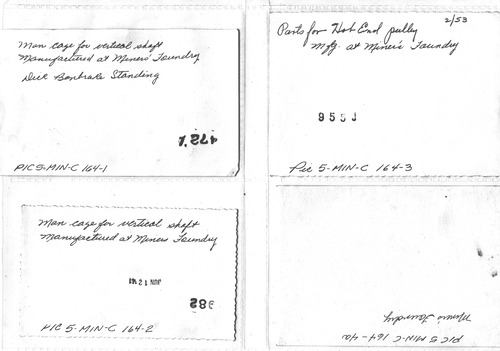 Man cage for vertical shaft
Manufactured at Miners' Foundry
Dick Bonbrake Standing
PIC 5-MIN-C 164-1
2/53
Parts for Hot End pulley
Mfg. at Miner's Foundry
955J
Pic 5-MIN-C 164-3
Man cage for vertical shaft
Manufactured at Miners Foundry
JUN 12
982
PIC 5-MIN-C 164-2
Miners Foundry
PIC 5 MIN-C 164-4a